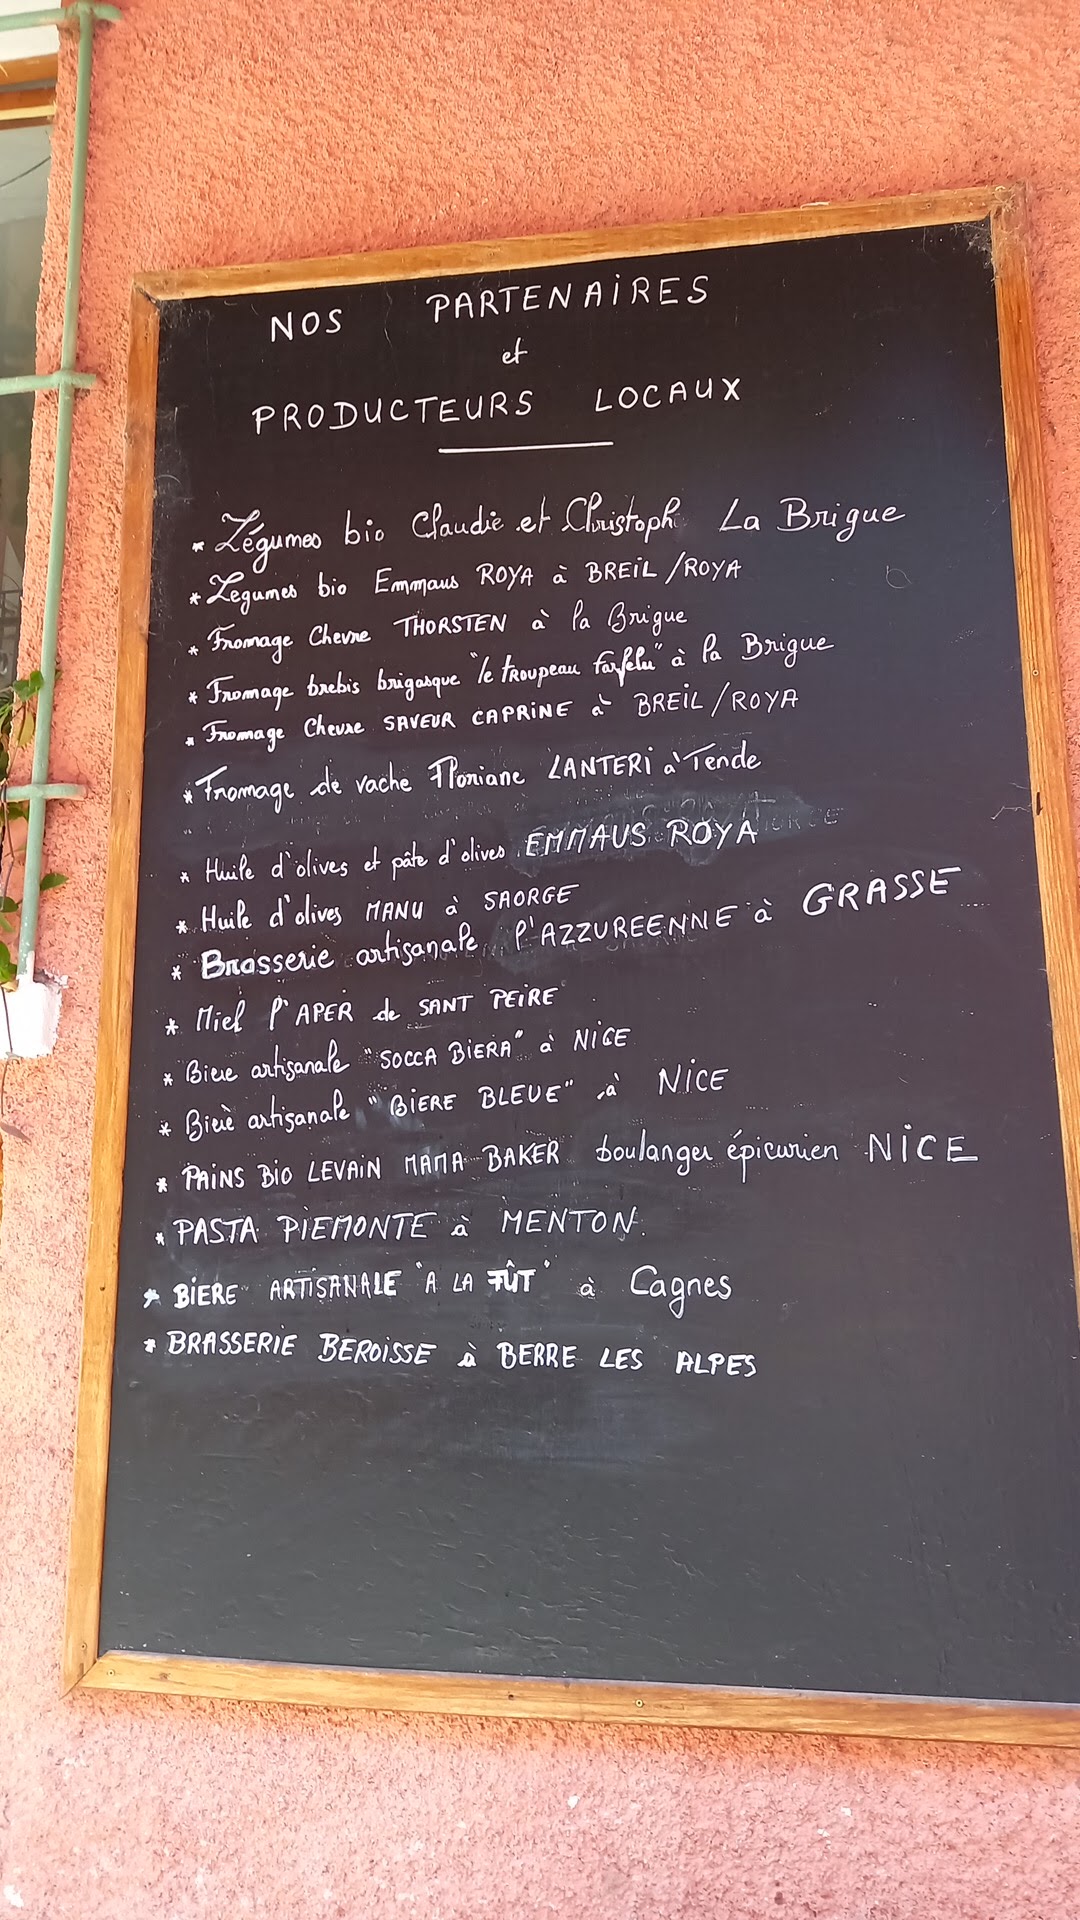 NOS PARTENAIRES
et
PRODUCTEURS LOCAUX
* Légumes bio Claudie et Christoph La Brigue
* Legumes bio Emmaus ROYA à BREIL/ROYA
* Fromage Chevre THORSTEN à la Brigue
* Fromage brebis brigasque "le troupeau farfelu" à la Brigue
* Fromage Chevre SAVEUR CAPRINE à BREIL/ROYA
* Fromage de vache Floriane LANTERI à Tende
* Huile d'olives et pâte d'olives EMMAUS ROYA
* Huile d'olives MANU à SAORGE
* Brasserie artisanale l'AZZUREENNE à GRASSE
* Miel l'APER de SANT PEIRE
* Biere artisanale "SOCCA BIERA" à NICE
* Bierè artisanale "BIERE BLEUE" à NICE
* PAINS BIO LEVAIN MAMA BAKER boulanger épicurien NICE
* PASTA PIEMONTE à MENTON.
* BIERE ARTISANALE "A LA FÛT" à Cagnes
* BRASSERIE BEROISSE à BERRE LES ALPES